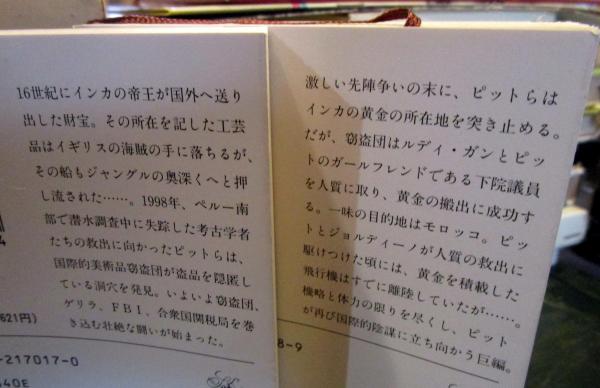 16世紀にインカの帝王が国外へ送り
出した財宝。その所在を記した工芸
品はイギリスの海賊の手に落ちるが、
その船もジャングルの奥深くへと押
し流された……。1998年、ペルー南
部で潜水調査中に失踪した考古学者
たちの救出に向かったピットらは、
国際的美術品窃盗団が盗品を隠匿し
ている洞穴を発見。いよいよ窃盗団、
ゲリラ、FBI、合衆国関税局を巻
き込む壮絶な闘いが始まった。
621円)
-217017-0
40E
激しい先陣争いの末に、ピットらは
インカの黄金の所在地を突き止める。
だが、窃盗団はルディ・ガンとピッ
トのガールフレンドである下院議員
を人質に取り、黄金の搬出に成功す
る。一味の目的地はモロッコ。ピッ
トとジョルディーノが人質の救出に
駆けつけた頃には、黄金を積載した
飛行機はすでに離陸していたが……。
機略と体力の限りを尽くし、ピット
が再び国際的陰謀に立ち向かう巨編。
8-9